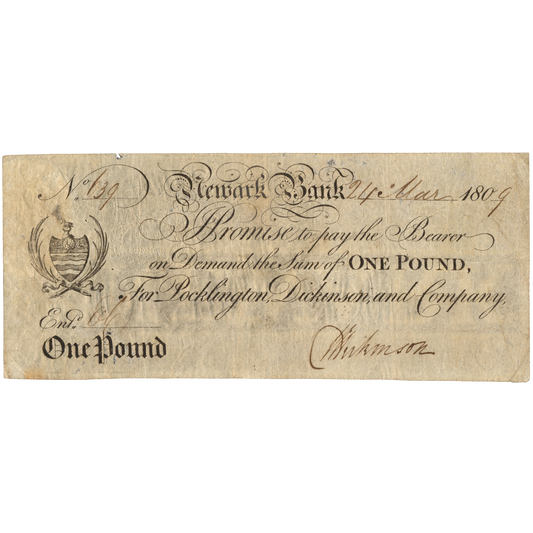 No. 639 Newark Bank 24 Mar 1809
I Promise to pay the Bearer
on Demand the Sum of ONE POUND,
For Pocklington, Dickinson, and Company,
Entd.
One Pound Dickinson